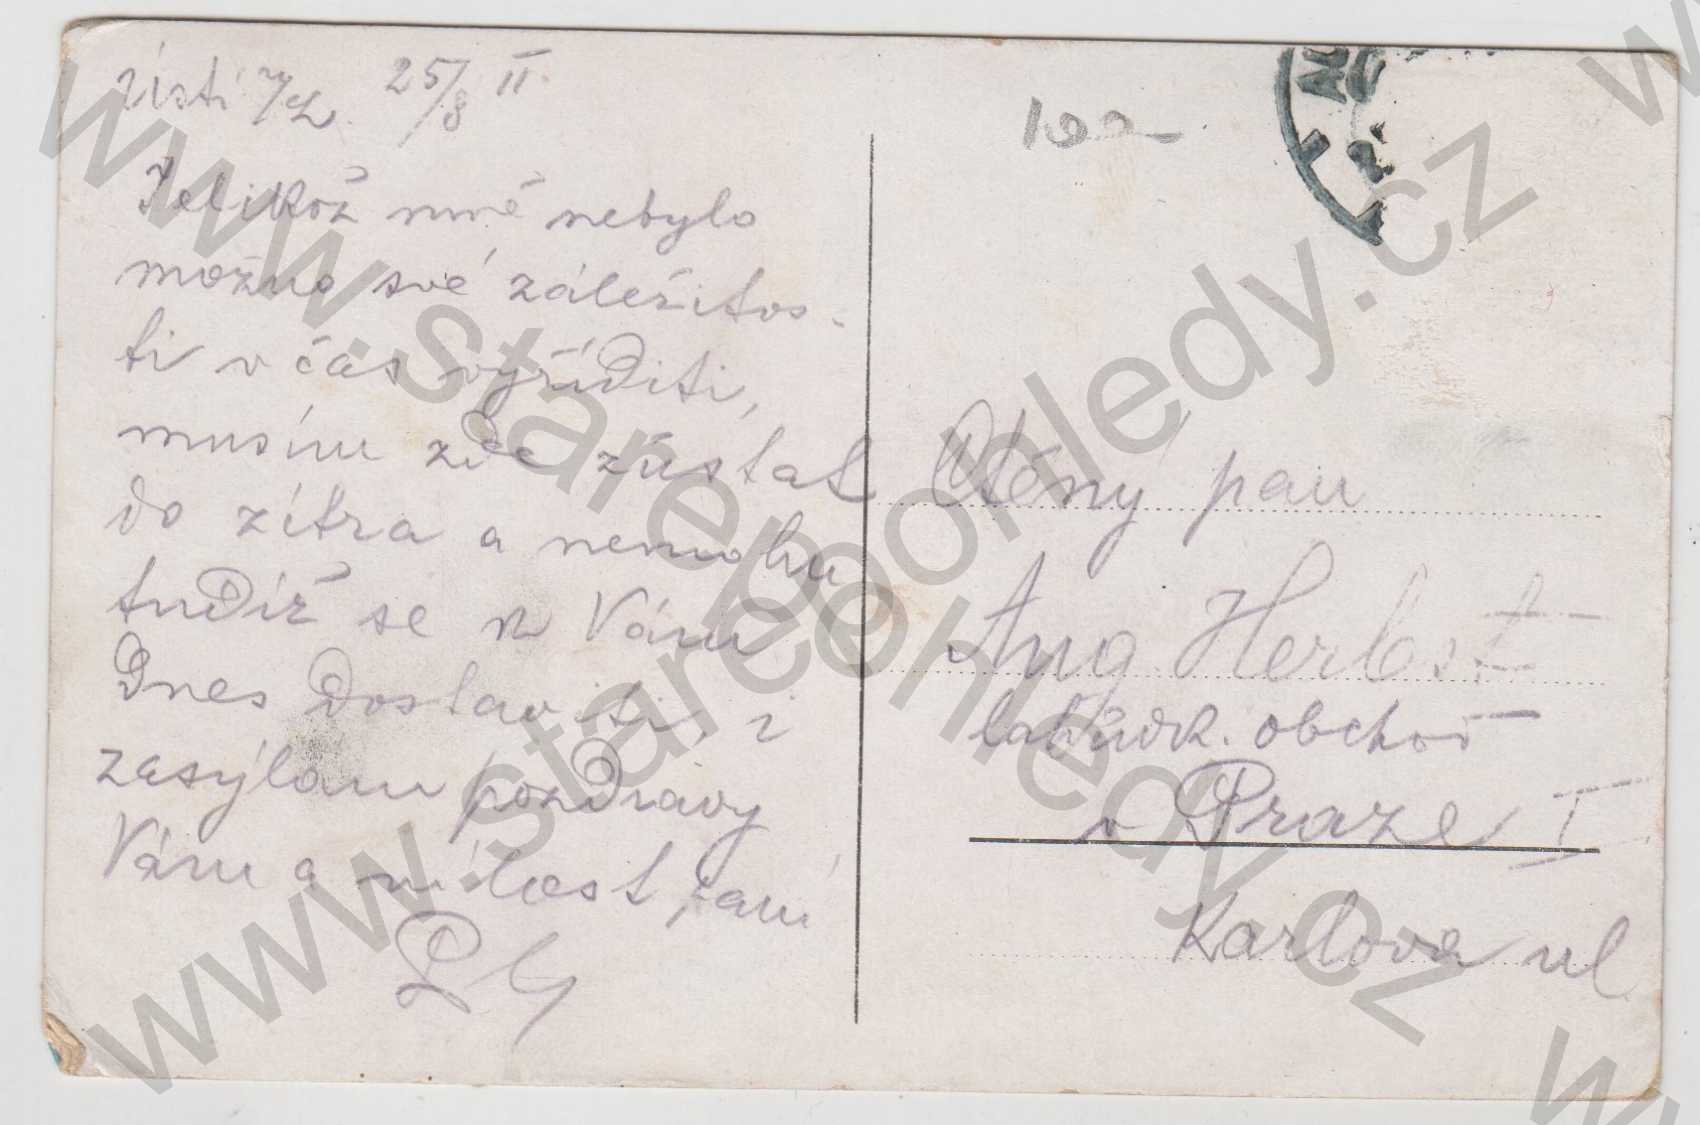 Ústí n/L. 25/8 11.
Jelikož mně nebylo
možno své záležitos-
ti v čas vyříditi,
musím zde zůstat
do zítra a nemohu
tudíž se k Vám
dnes dostaviti, i
zasýlám pozdravy
Vám a milost paní
100-
Ctěný pan
Aug. Herbst
lahůdk. obchod
v Praze I
Karlova ul
www.starepohledy.cz
www.starepohledy.cz